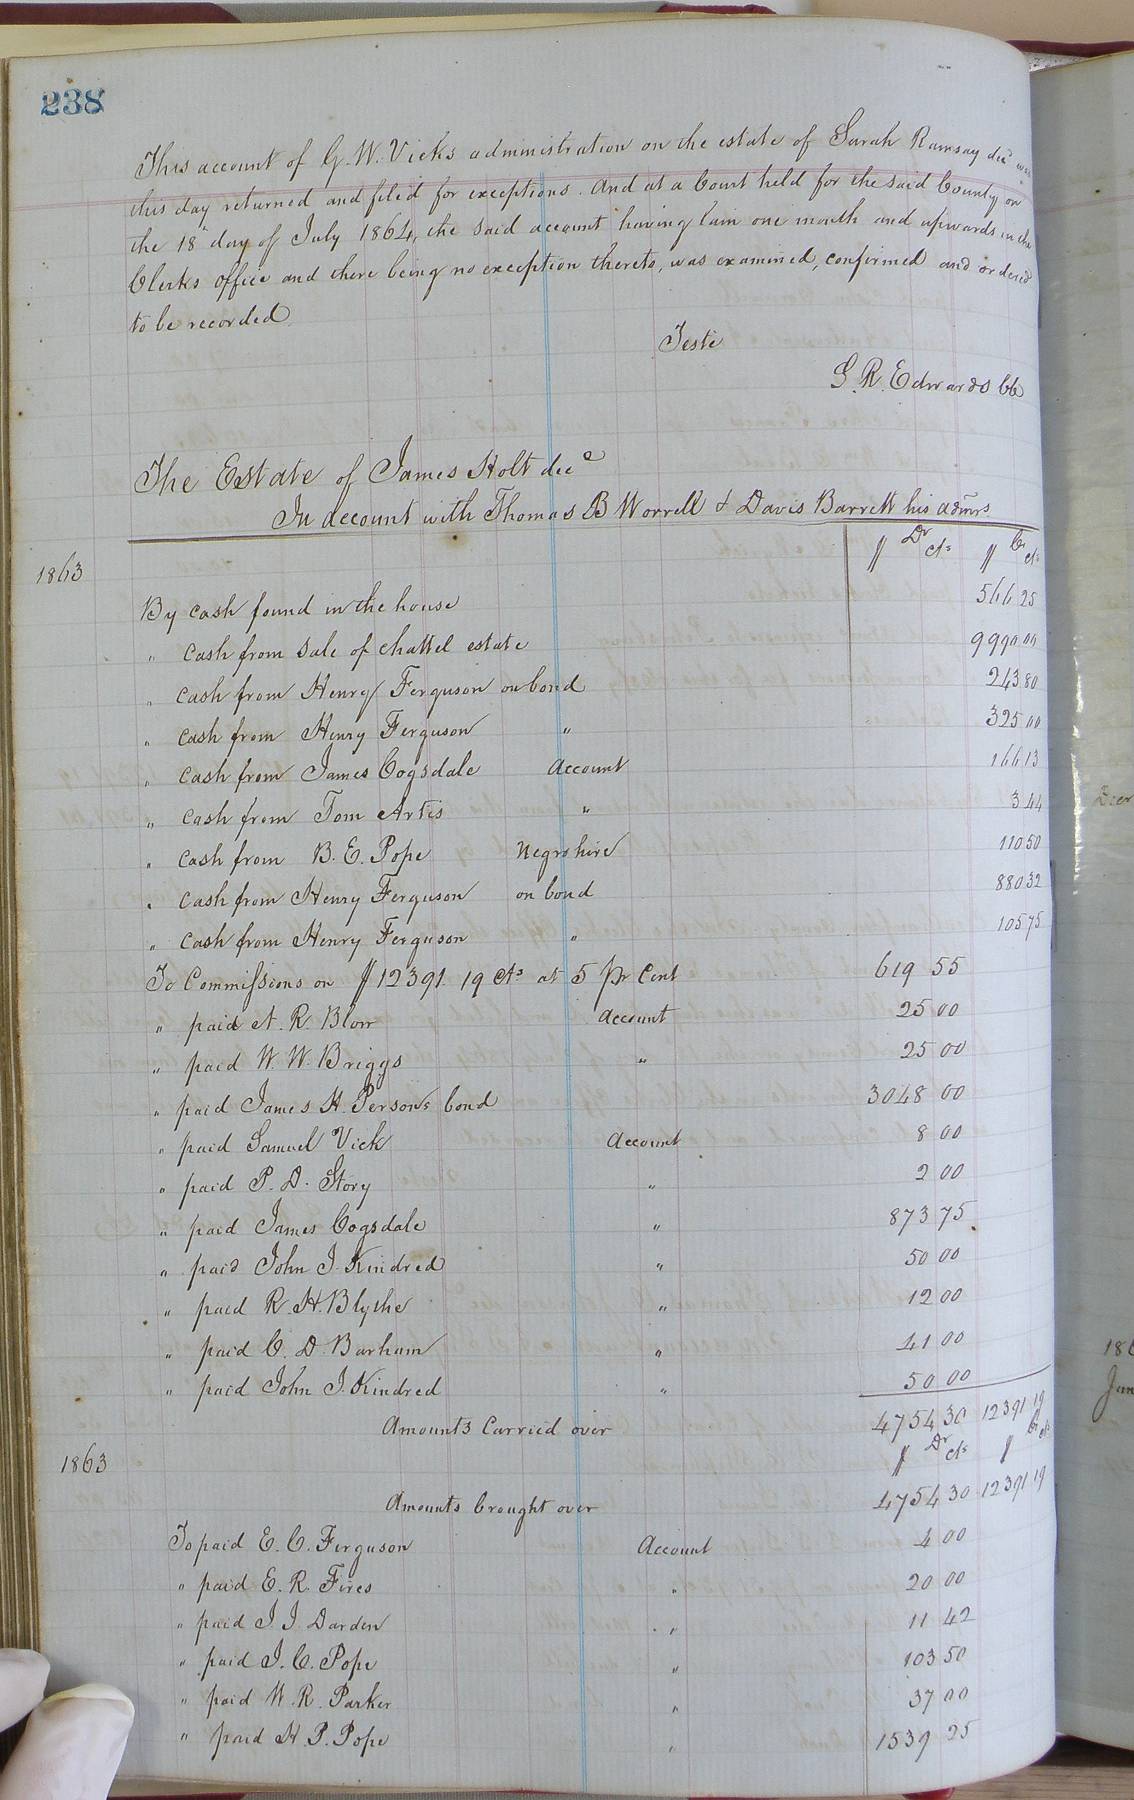 238
This account of G. W. Vicks administration on the estate of Sarah Ramsay decd was
this day returned and filed for exceptions. And at a Court held for the said County on
the 18th day of July 1864, the said account having lain one month and upwards in the
Clerks office and there being no exception thereto, was examined, confirmed and ordered
to be recorded.
Teste
Edwards CC
The Estate of James Holt decd
In account with Thomas B Worrell & Davis Barrett his admrs.
$ Dr cts $ Cr cts
1863
By cash found in the house 566 25
" cash from sale of chattel estate 9990 00
" cash from Henry Ferguson on bond 243 80
" cash from Henry Ferguson " 325 00
" cash from James Cogsdale Account 166 13
" cash from Tom Artis " 3 44
" cash from B. E. Pope Negro hire 110 50
" cash from Henry Ferguson on bond 880 32
" cash from Henry Ferguson " 105 75
To Commissions on $12391. 19 cts at 5 pr Cent 619 55
" paid N. R. Blow account 25 00
" paid W. W. Briggs " 25 00
" paid James H. Persons bond 3048 00
" paid Samuel Vick Account 8 00
" paid P. D. Story " 2 00
" paid James Cogsdale " 873 75
" paid John J. Kindred " 50 00
" paid R. H. Blythe " 12 00
" paid C. D. Barham " 41 00
" paid John J. Kindred " 50 00
Amounts Carried over 4754 30 12391 19
$ Dr cts $ Cr cts
1863
Amounts brought over 4754 30 12391 19
To paid E. C. Ferguson Account 4 00
" paid E. R. Fires " 20 00
" paid J. J. Darden " 11 42
" paid J. C. Pope " 103 50
" paid W. R. Parker " 37 00
" paid H. P. Pope " 1539 25